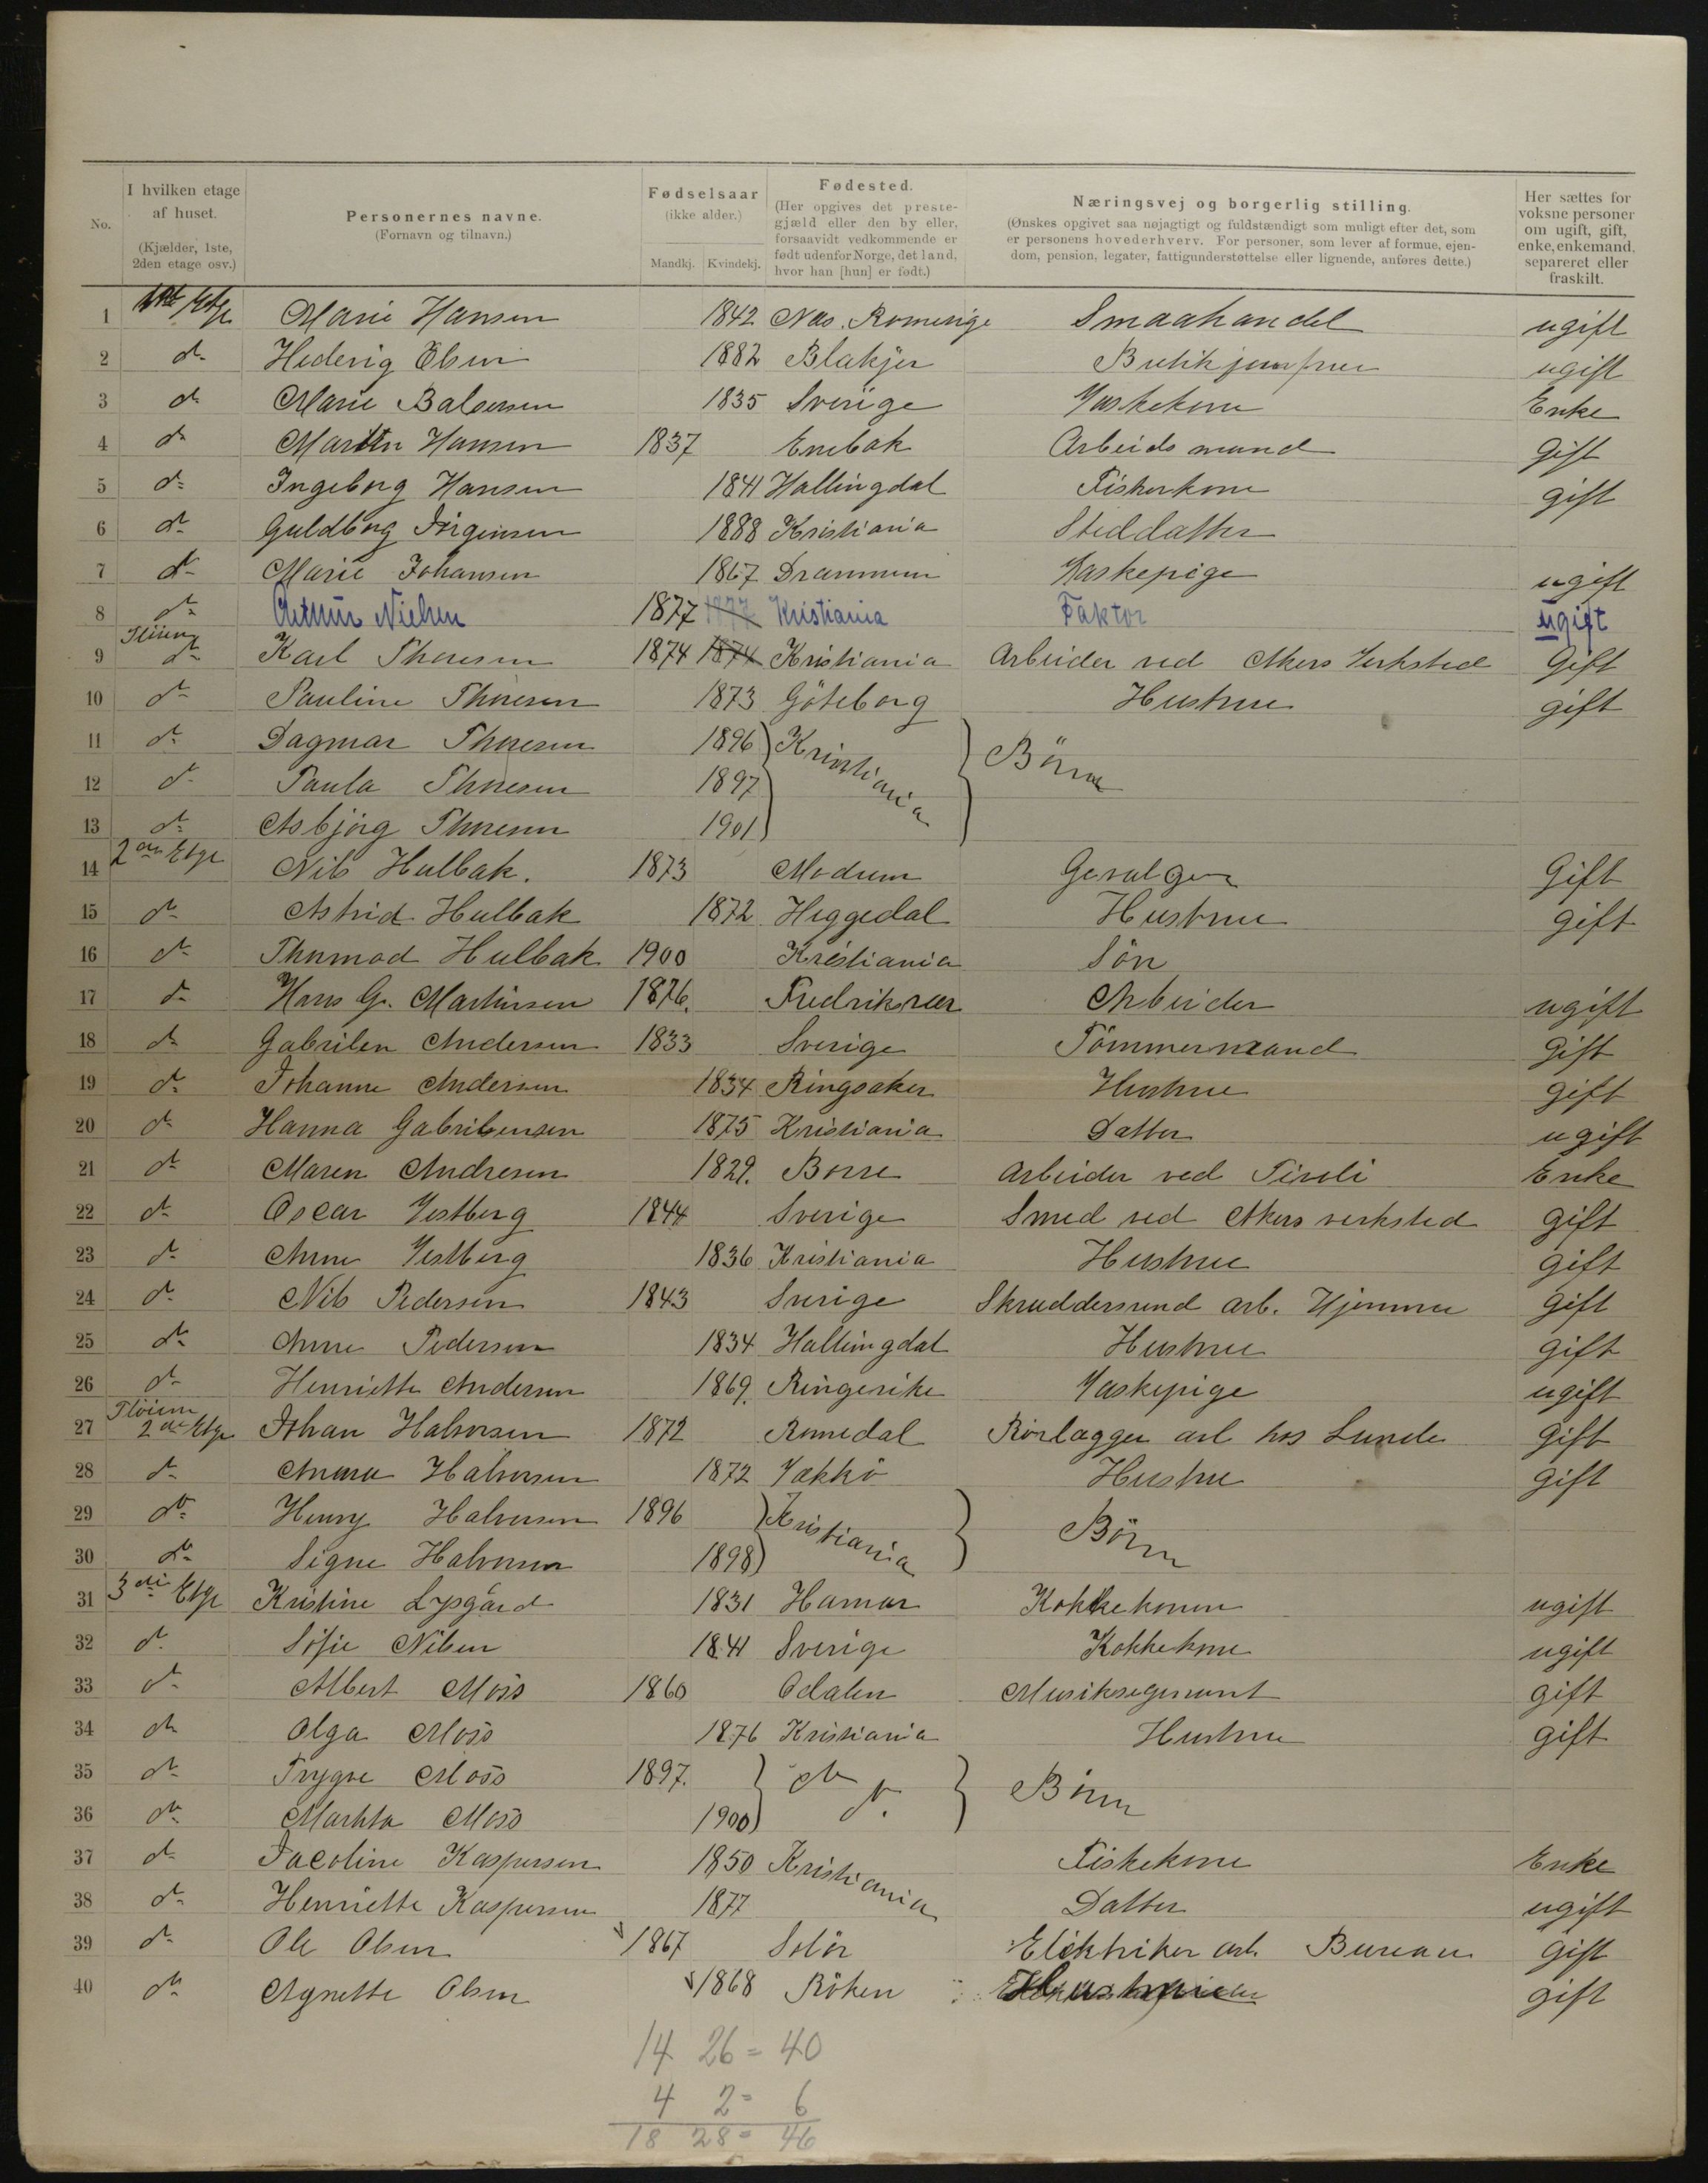 No.
I hvilken etage af huset. (Kjælder, 1ste, 2den etage osv.)
Personernes navne. (Fornavn og tilnavn.)
Fødselsaar (ikke alder.) Mandkj. Kvindekj.
Fødested. (Her opgives det prestegjæld eller den by eller, forsaavidt vedkommende er født udenfor Norge, det land, hvor han [hun] er født.)
Næringsvej og borgerlig stilling. (Ønskes opgivet saa nøjagtigt og fuldstændigt som muligt efter det, som er personens hovederhverv. For personer, som lever af formue, ejendom, pension, legater, fattigunderstøttelse eller lignende, anføres dette.)
Her sættes for voksne personer om ugift, gift, enke, enkemand, separeret eller fraskilt.
1 1ste Etge Marie Hansen 1842 Næs. Romerige Smaahandel ugift
2 do Hedevig Olsen 1882 Blakjer Butikjomfrue ugift
3 do Marie Balsersen 1835 Sverige Vaskekone Enke
4 do Martin Hansen 1837 Enebak Arbeidsmand gift
5 do Ingeborg Hansen 1841 Hallingdal Fiskerkone gift
6 do Guldborg Jörgensen 1888 Kristiania Steddatter
7 do Marie Johansen 1867 Drammen Vaskepige ugift
8 do Arthur Nielsen 1877 1877 Kristiania Faktor ugift
9 Flöien do Karl Thoresen 1874 1874 Kristiania Arbeider ved Akers Verksted Gift
10 do Pauline Thoresen 1873 Göteborg Hustrue gift
11 do Dagmar Thoresen 1896 Kristiania Börn
12 do Paula Thoresen 1897
13 do Asbjörg Thoresen 1901
14 2den Etge Nils Hulbak. 1873 Modum Gevalger Gift
15 do Astrid Hulbak 1872 Heggedal Hustrue gift
16 do Thormod Hulbak 1900 Kristiania Sön
17 do Hans G. Martinsen 1876. Fredriksvær Arbeider ugift
18 do Gabrilen Andersen 1833 Sverige Tömmermand Gift
19 do Johanne Andersen 1834 Ringsaker Hustrue gift
20 do Hanna Gabrilensen 1875 Kristiania Datter ugift
21 do Maren Andresen 1829. Borre Arbeider ved Tivoli Enke
22 do Oscar Vestberg 1844 Sverige Smed ved Akers verksted gift
23 do Anne Vestberg 1836 Kristiania Hustrue gift
24 do Nils Pedersen 1843 Sverige Skreddersvend arb. Hjemme Gift
25 do Anne Pedersen 1834 Hallingdal Hustrue gift
26 do Henriette Andersen 1869. Ringerike Vaskepige ugift
27 Flöien 2den Etge Johan Halvorsen 1872 Romedal Rörlægger arb hos Lunde gift
28 do Anna Halvorsen 1872 Hustrue gift
29 do Henry Halvorsen 1896 Kristiania Börn
30 do Signe Halvorsen 1898
31 3die Etge Kristine Lysgård 1831 Hamar Kokkekonen ugift
32 do Sofie Nilsen 1841 Sverige Kokkekone ugift
33 do Albert Moss 1860 Odalen gift
34 do Olga Moss 1876 Kristiania Hustrue gift
35 do Trygve Moss 1897. do Börn
36 do Martha Moss 1900
37 do Jacoline Kaspersen 1850 Kristiania Fiskekone Enke
38 do Henriette Kaspersen 1877 Datter ugift
39 do Ole Olsen 1867 Solör Elektriker arb. Bureau gift
40 do Agnette Olsen 1868 Röken Hustrue gift
14 26 = 40
4 2 = 6
18 28 = 46